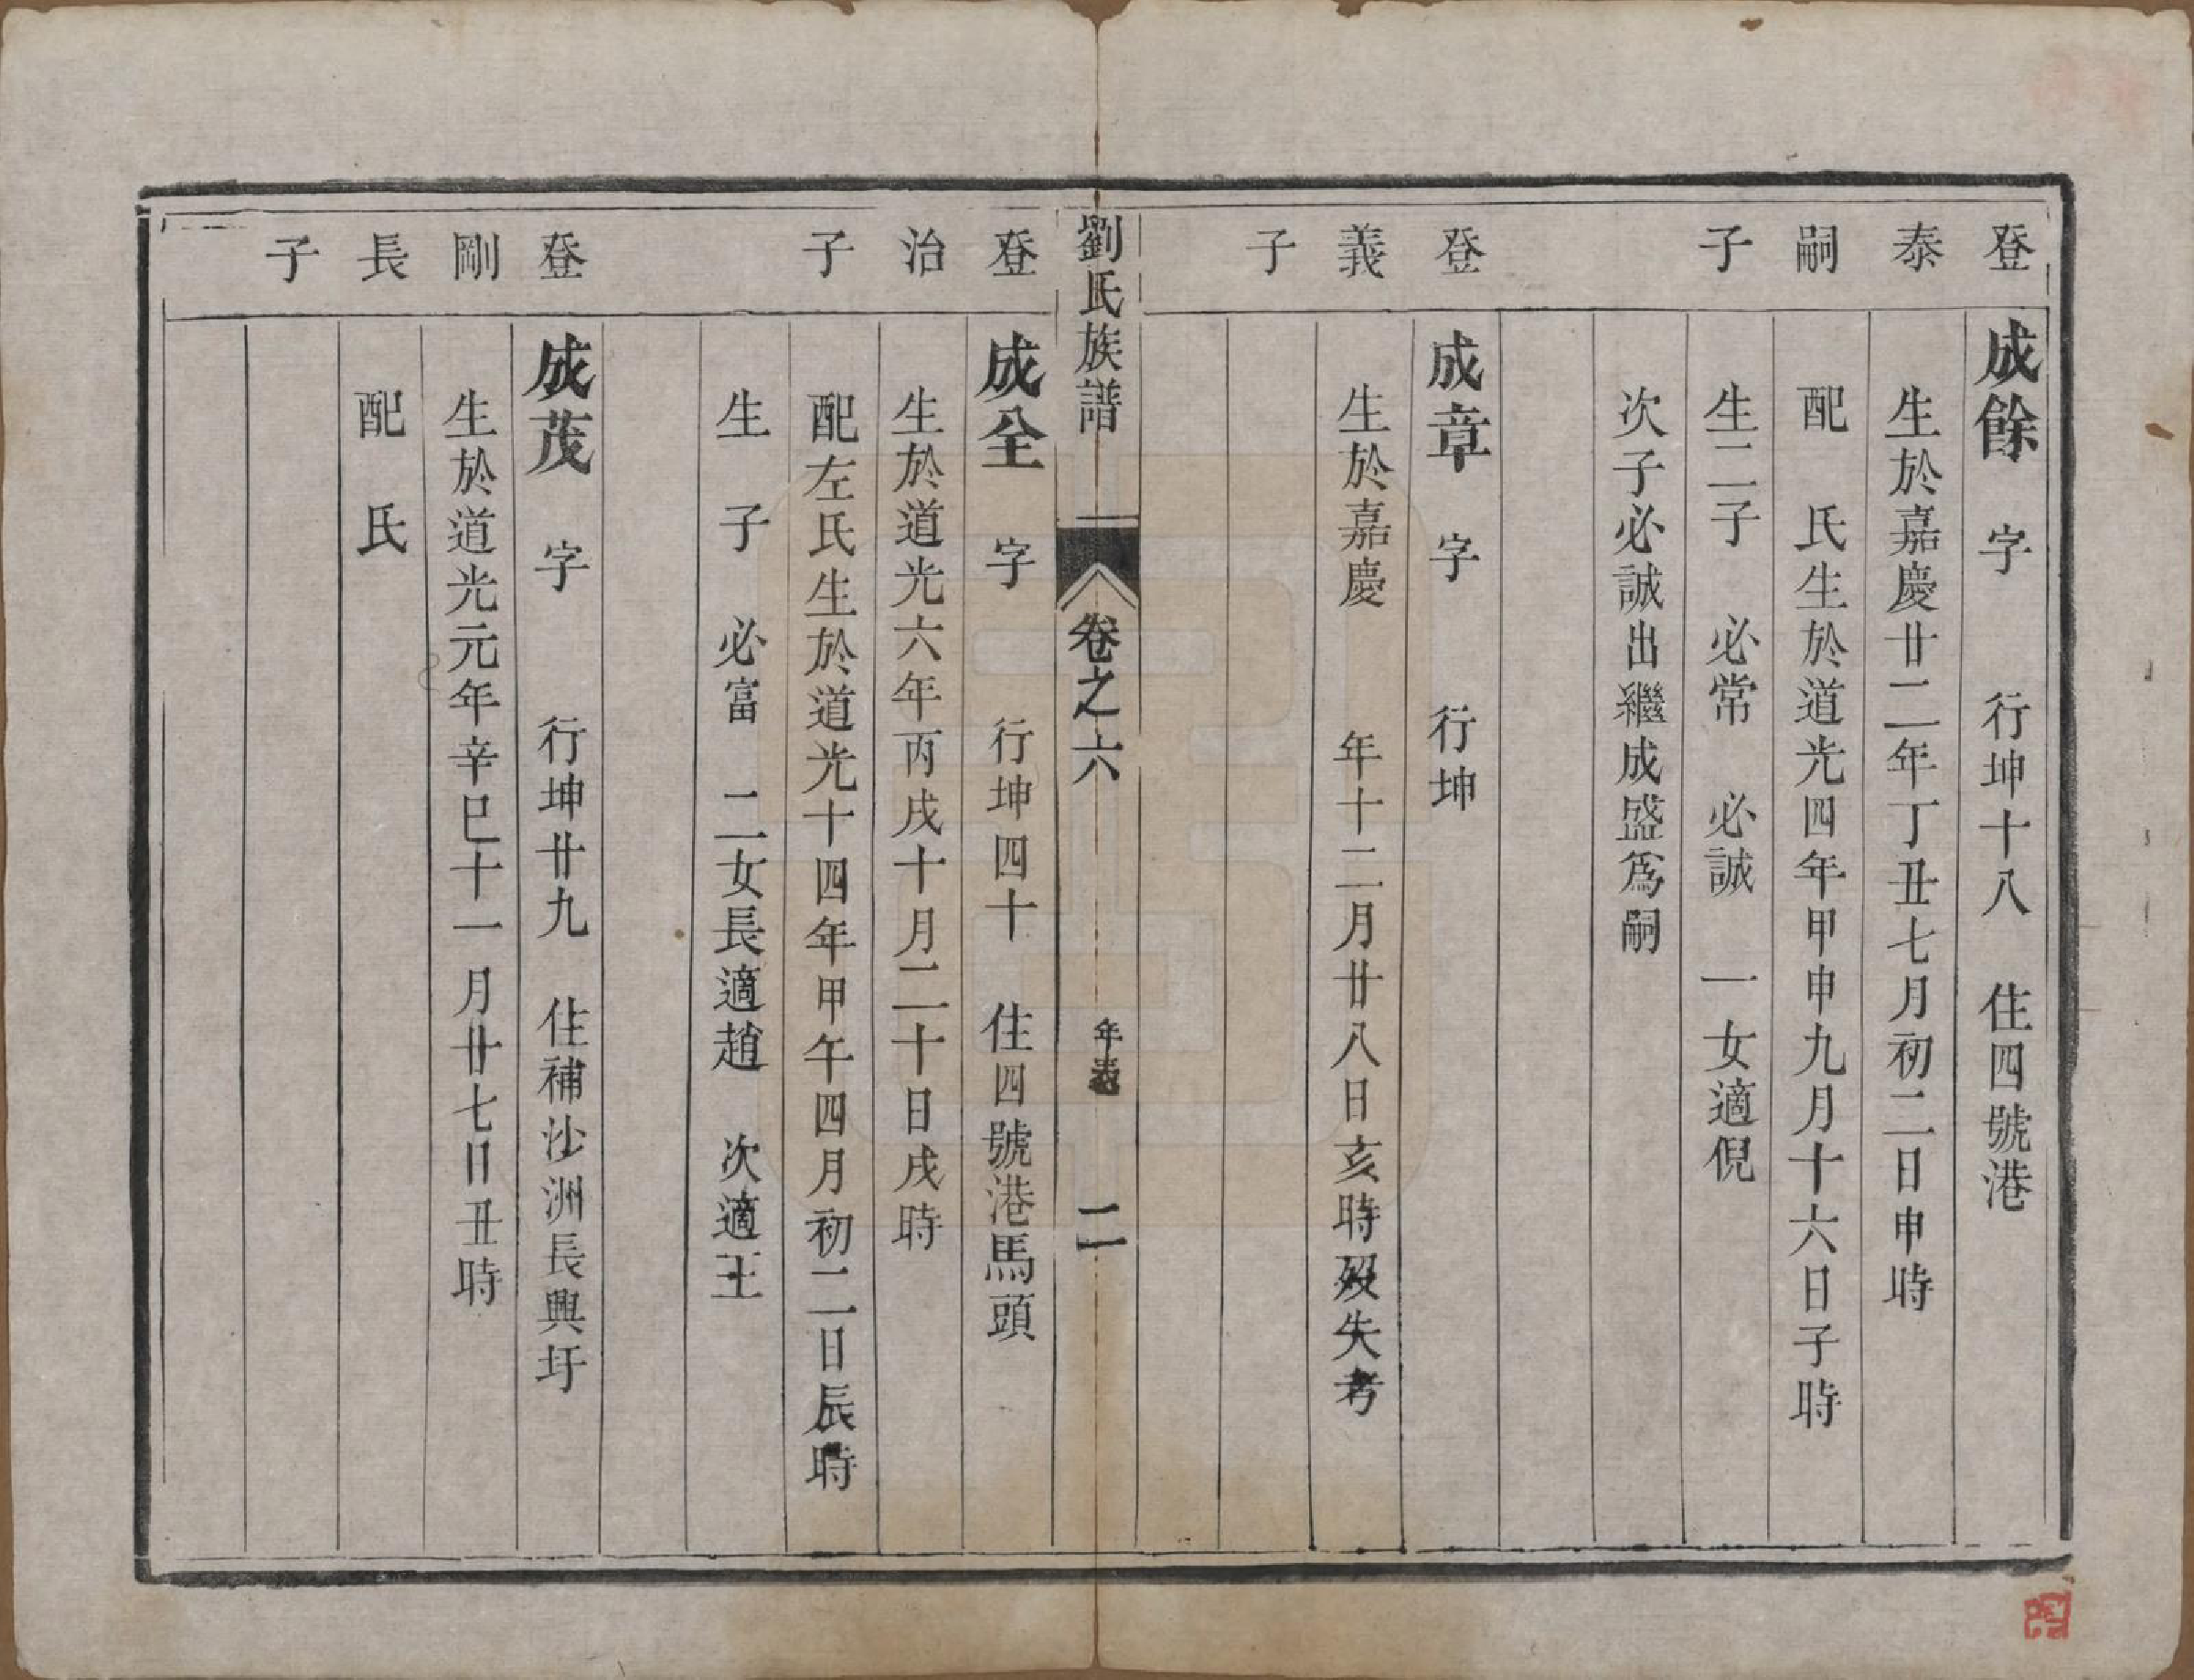 登 成餘 字 行坤十八 住四號港
泰 生於嘉慶廿二年丁丑七月初二日申時
嗣 配 氏生於道光四年甲申九月十六日子時
子 生二子 必常 必誠 一女適倪
次子必誠出繼成盛爲嗣
登 成章 字 行坤
義 生於嘉慶 年十二月廿八日亥時歿失考
子
劉氏族譜 卷之六 年表 二
登 成全 字 行坤四十 住四號港馬頭
治 生於道光六年丙戌十月二十日戌時
子 配左氏生於道光十四年甲午四月初二日辰時
生 子 必富 二女長適趙 次適王
登 成茂 字 行坤廿九 住補沙洲長興圩
剛 生於道光元年辛巳十一月廿七日丑時
長 配 氏
子